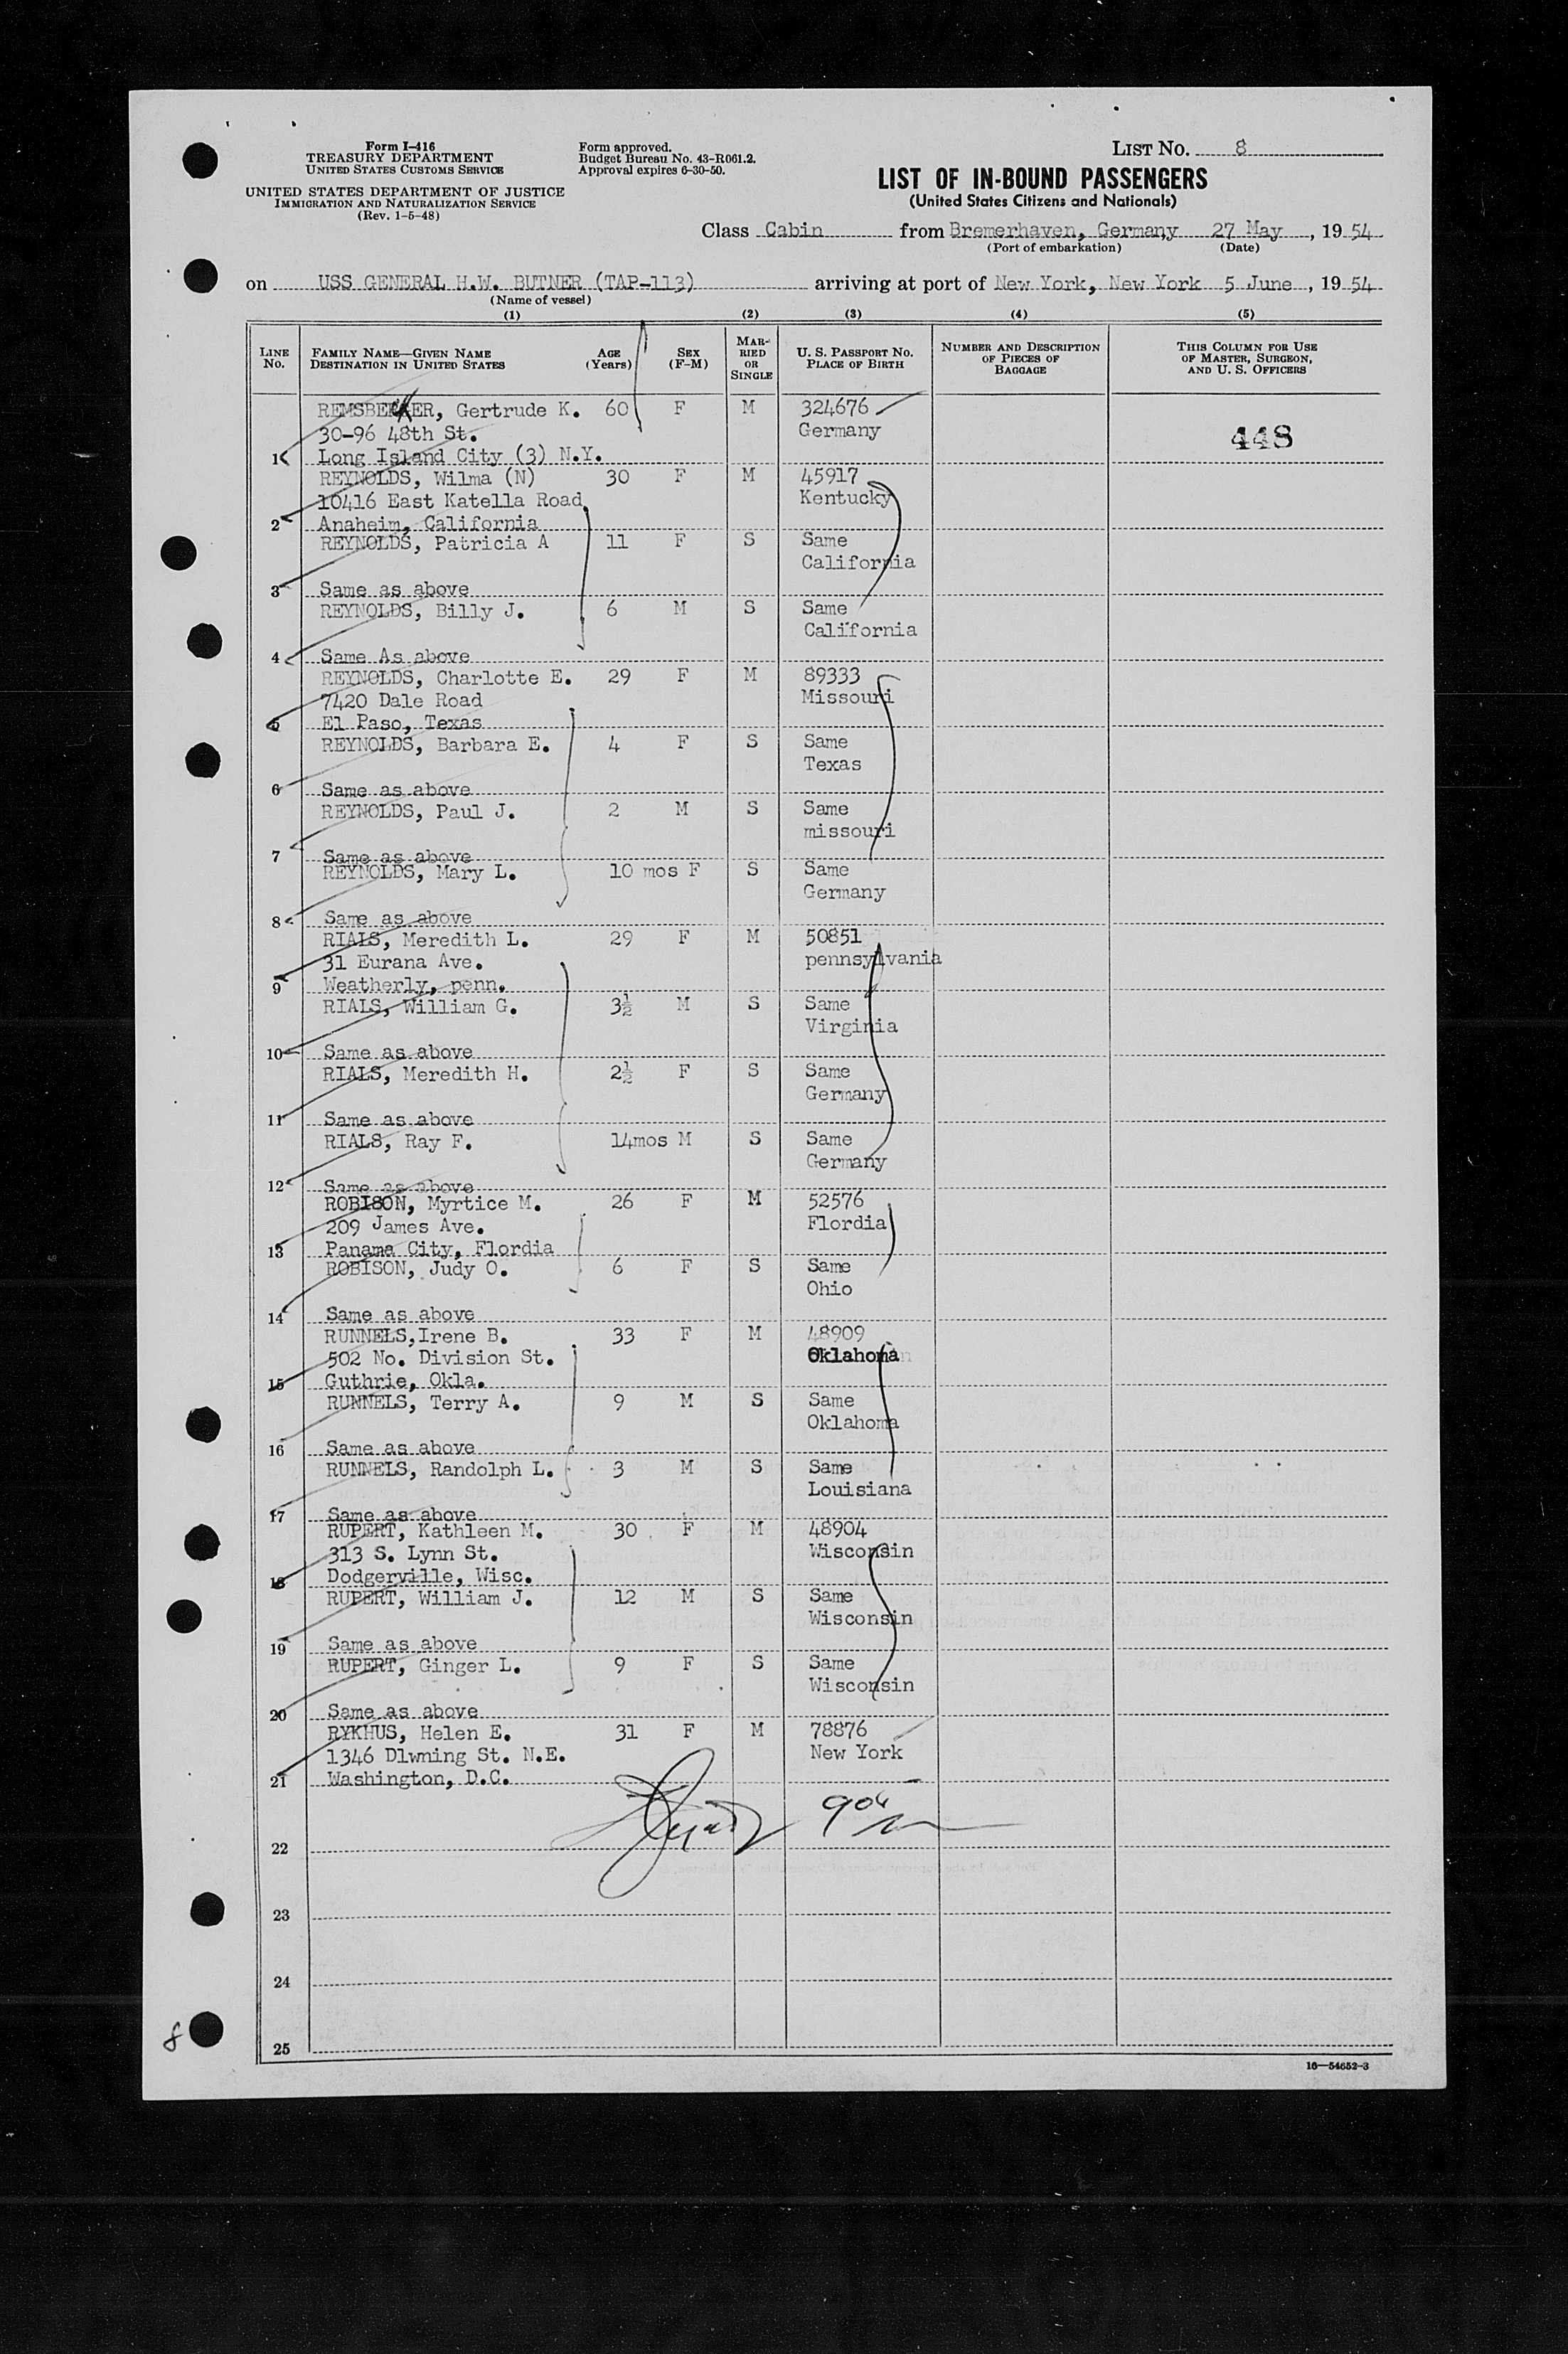 Form I-416
TREASURY DEPARTMENT
UNITED STATES CUSTOMS SERVICE
UNITED STATES DEPARTMENT OF JUSTICE
IMMIGRATION AND NATURALIZATION SERVICE
(Rev. 1-5-48)
Form approved.
Budget Bureau No. 43-R061.2.
Approval expires 6-30-50.
LIST No. 8
LIST OF IN-BOUND PASSENGERS
(United States Citizens and Nationals)
Class Cabin from Bremerhaven, Germany 27 May, 19 54
(Port of embarkation) (Date)
on USS GENERAL H.W. BUTNER (TAP-113) arriving at port of New York, New York 5 June, 19 54
(Name of vessel)
(1) (2) (3) (4) (5)
LINE No. FAMILY NAME—GIVEN NAME DESTINATION IN UNITED STATES AGE (Years) SEX (F-M) MARRIED OR SINGLE U. S. PASSPORT No. PLACE OF BIRTH NUMBER AND DESCRIPTION OF PIECES OF BAGGAGE THIS COLUMN FOR USE OF MASTER, SURGEON, AND U. S. OFFICERS
Gertrude K. 60 F M 324676
30-96 48th St. Germany 448
1 Long Island City (3) N.Y.
REYNOLDS, Wilma (N) 30 F M 45917
10416 East Katella Road Kentucky
2 Anaheim, California
REYNOLDS, Patricia A 11 F S Same
California
3 Same as above
REYNOLDS, Billy J. 6 M S Same
California
4 Same As above
REYNOLDS, Charlotte E. 29 F M 89333
7420 Dale Road Missouri
5 El Paso, Texas
REYNOLDS, Barbara E. 4 F S Same
Texas
6 Same as above
REYNOLDS, Paul J. 2 M S Same
missouri
7 Same as above
REYNOLDS, Mary L. 10 mos F S Same
Germany
8 Same as above
RIALS, Meredith L. 29 F M 50851
31 Eurana Ave. pennsylvania
9 Weatherly, penn.
RIALS, William G. 3½ M S Same
Virginia
10 Same as above
RIALS, Meredith H. 2½ F S Same
Germany
11 Same as above
RIALS, Ray F. 14mos M S Same
Germany
12 Same as above
ROBISON, Myrtice M. 26 F M 52576
209 James Ave. Flordia
13 Panama City, Flordia
ROBISON, Judy O. 6 F S Same
Ohio
14 Same as above
RUNNELS, Irene B. 33 F M 48909
502 No. Division St. Oklahoma
15 Guthrie, Okla.
RUNNELS, Terry A. 9 M S Same
Oklahoma
16 Same as above
RUNNELS, Randolph L. 3 M S Same
Louisiana
17 Same as above
RUPERT, Kathleen M. 30 F M 48904
313 S. Lynn St. Wisconsin
18 Dodgerville, Wisc.
RUPERT, William J. 12 M S Same
Wisconsin
19 Same as above
RUPERT, Ginger L. 9 F S Same
Wisconsin
20 Same as above
RYKHUS, Helen E. 31 F M 78876
1346 Dlwning St. N.E. New York
21 Washington, D.C.
22
23
24
25
8
16—54652-3